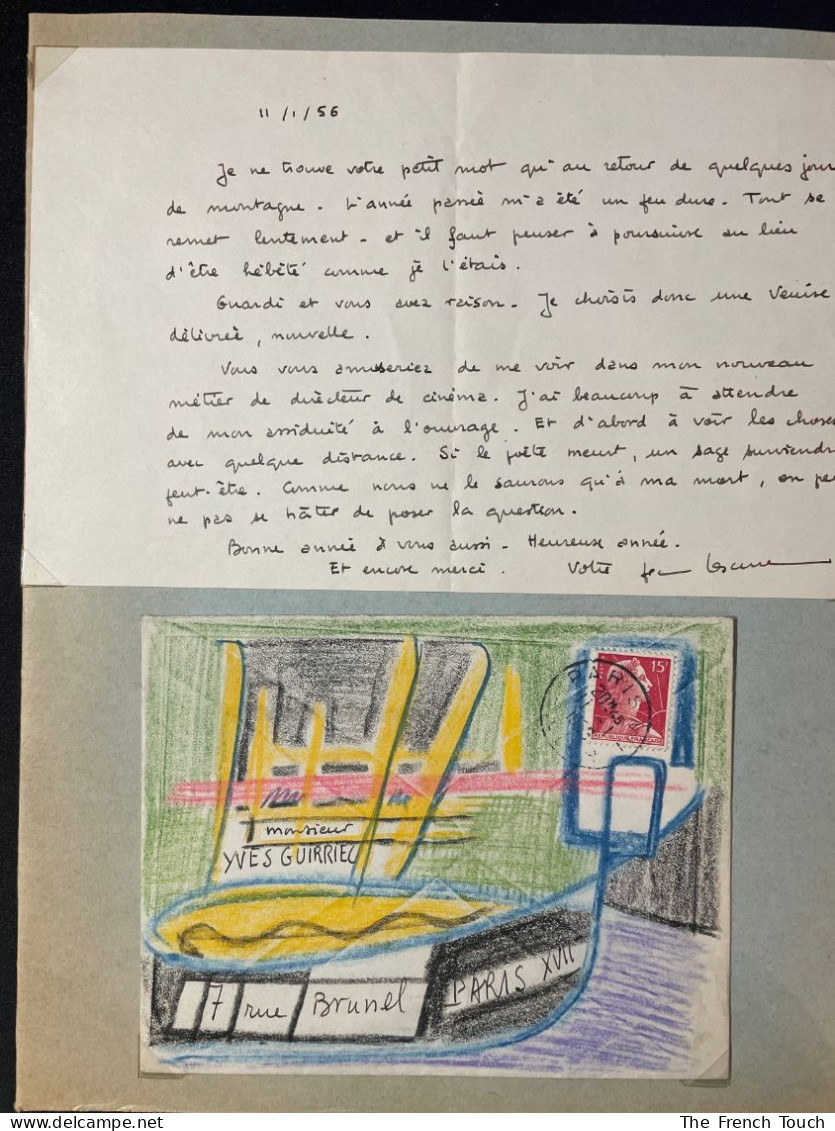 11/1/56
Je ne trouve votre petit mot qu'au retour de quelques jour
de montagne. L'année passée m'a été un peu dure. Tout se
remet lentement - et il faut penser à poursuivre au lieu
d'être hébété comme je l'étais.
Guardi et vous avez raison. Je choisis donc une Venise
délivrée, nouvelle.
Vous vous amuseriez de me voir dans mon nouveau
métier de directeur de cinéma. J'ai beaucoup à attendre
de mon assiduité à l'ouvrage. Et d'abord à voir les choses
avec quelque distance. Si le poète meurt, un sage surviendra
peut-être. Comme nous ne le saurons qu'à ma mort, on peu
ne pas se hâter de poser la question.
Bonne année à vous aussi - Heureuse année.
Et encore merci. Votre
15F
PARIS
REPUBLIQUE FRANÇAISE
monsieur
YVES GUIRRIEC
7 rue Brunel PARIS XVII
The French Touch